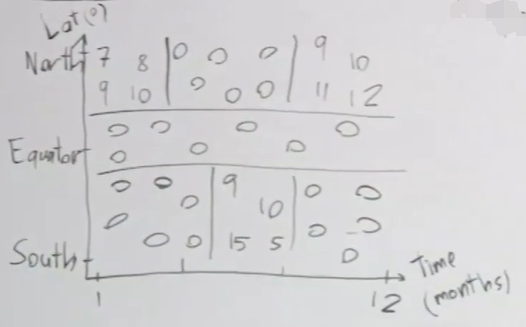 Lat(°)
North 7 8 0 0 0 9 10
9 10 0 0 0 11 12
0 0 0 0
Equator 0 0 0
0 0 9 0 0
0 10
0 0 0
South 0 0 15 5 0
Time
1 12 (months)